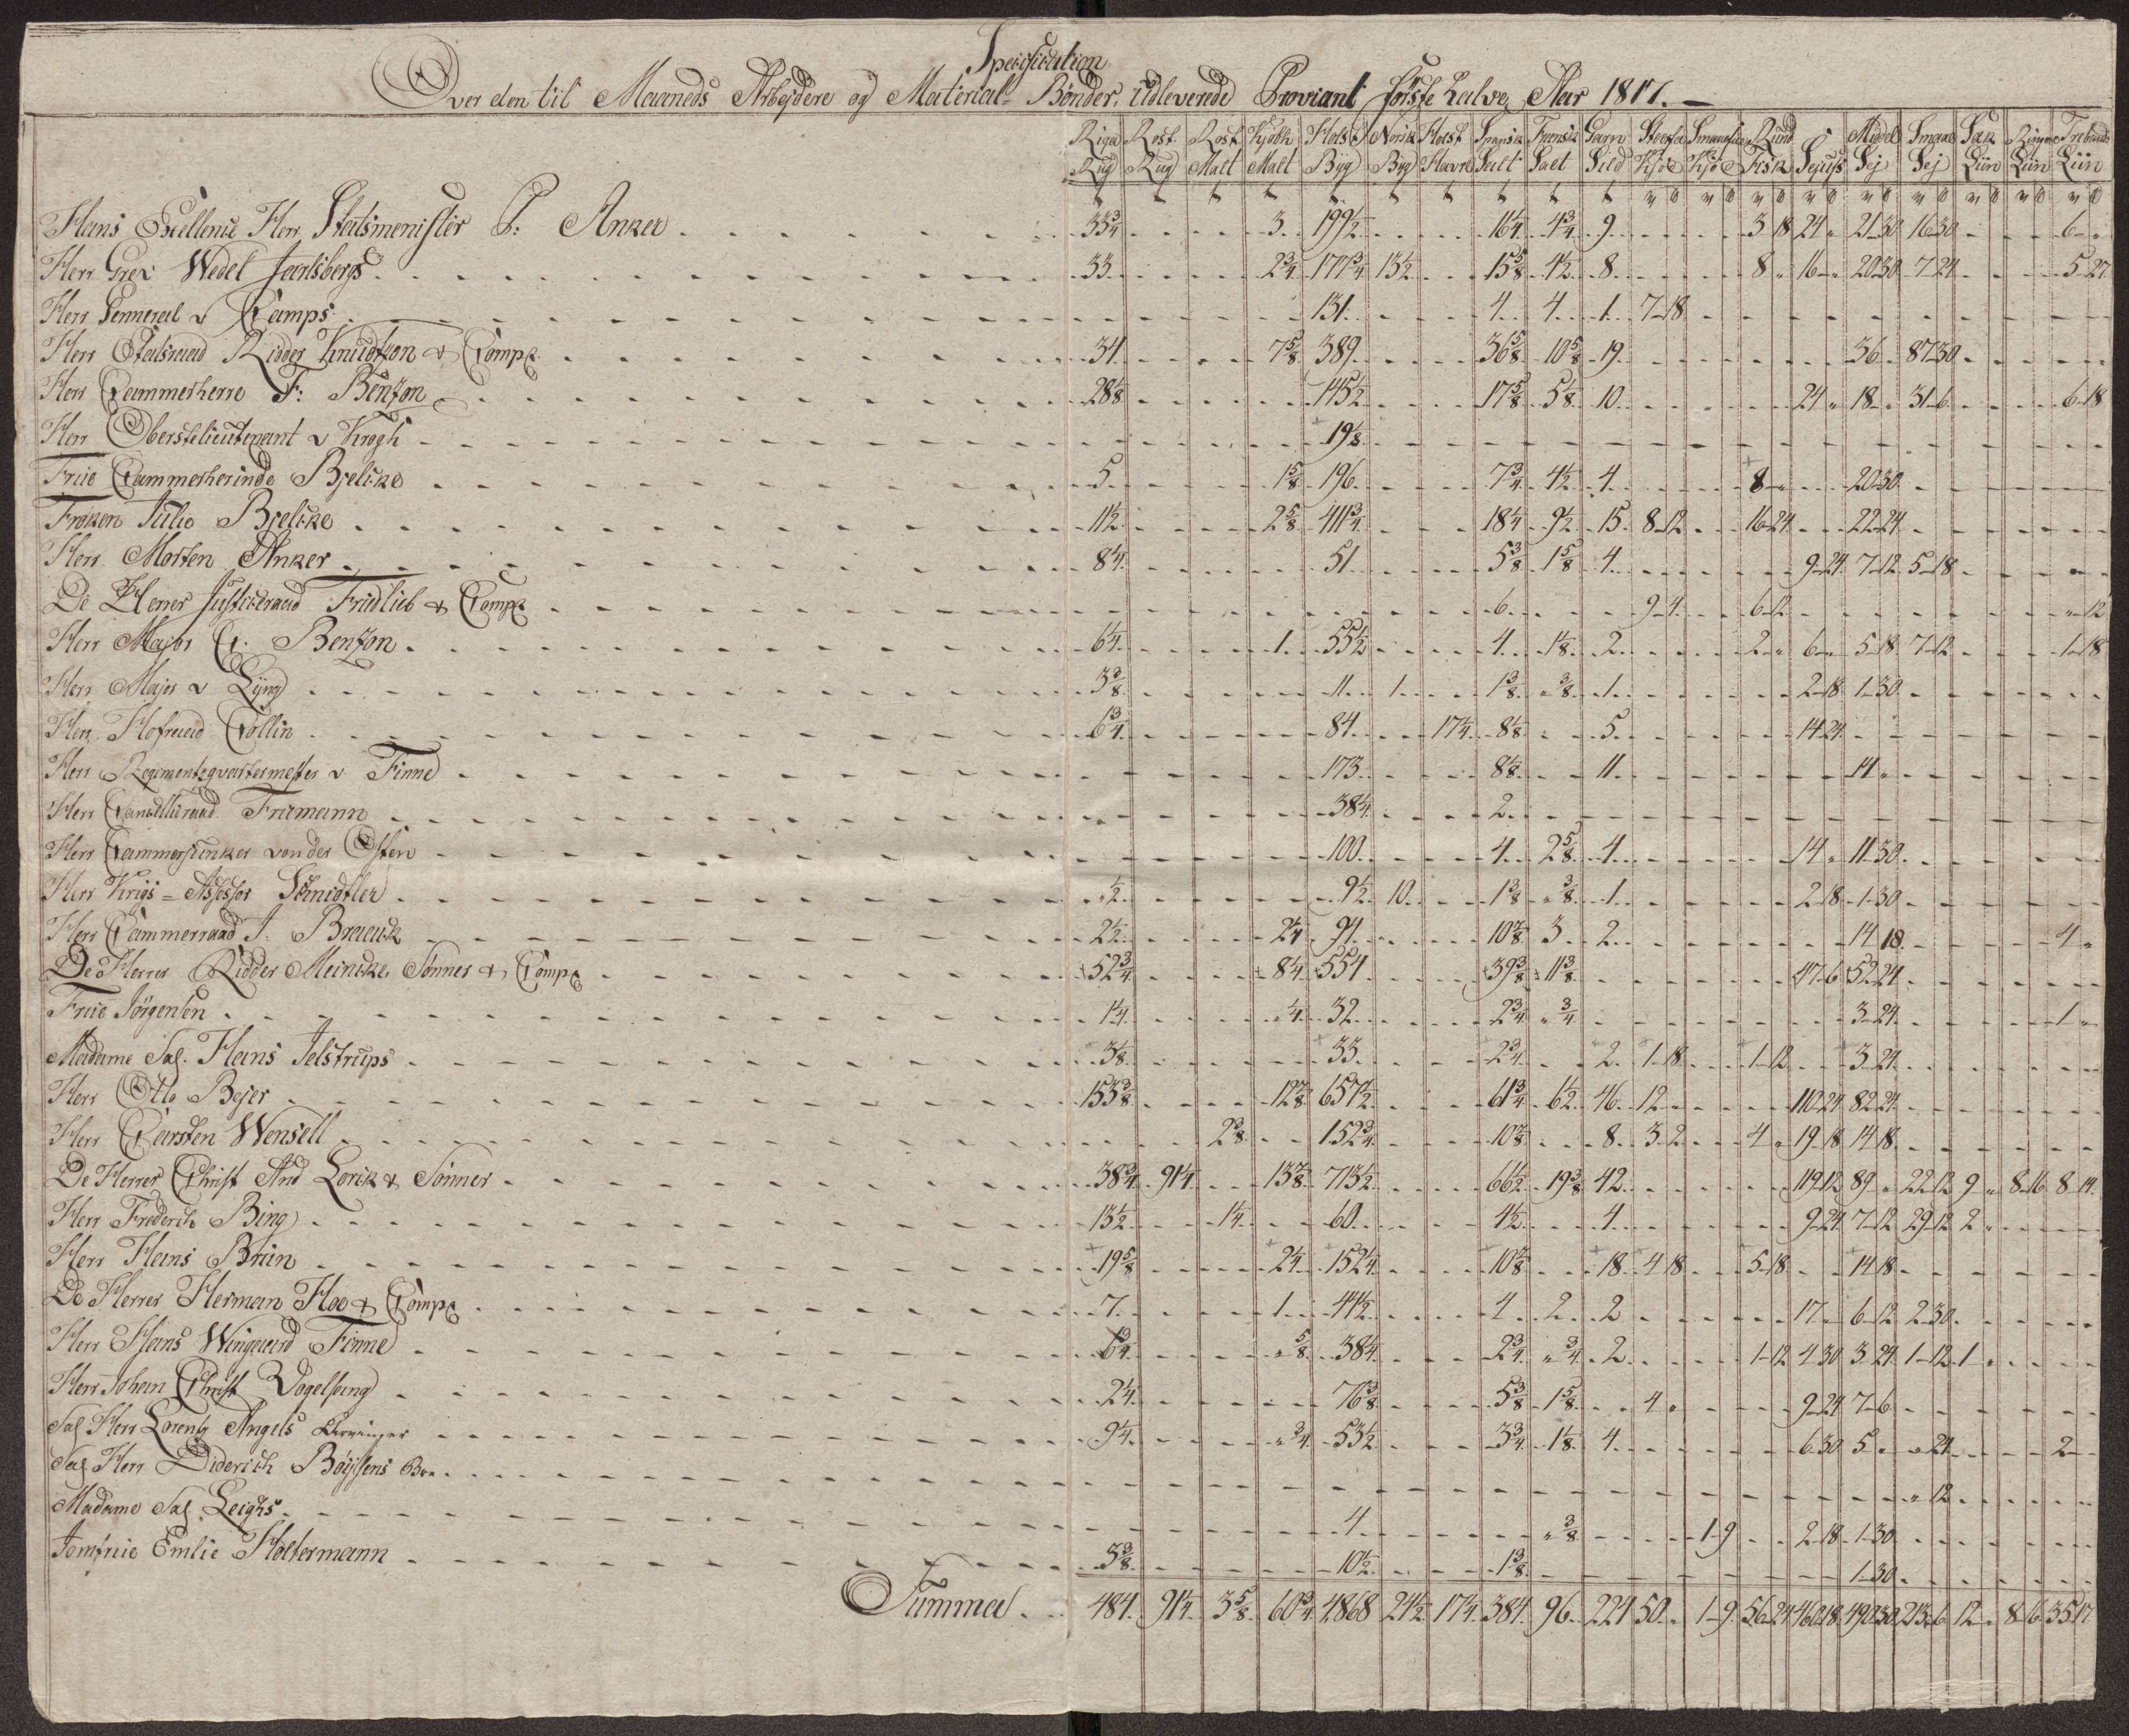 Specification
Over den til Maaneds Arbejdere og Material-Bønder, udleverede Proviant første halve Aar 1817.
Riga Rug Rost. Rug Rost. Malt Kjøbh. Malt Holst. Byg Norsk Byg Holst. Havre Spansk Salt Fransk Salt Garn Sild Rund Fisk Middel Sej Smaae Sej Trebands Liin
Hans Excellence Herr Statsmenister P: Anker 33¾ 3 199½ 16¼ 4¾ 9 3 18 24 " 21 30 16 30 6 "
Herr Grev Wedel Jarlsberg 33 2¾ 177¾ 13½ 15⅝ 4½ 8 8 " 16 " 20 30 7 24 5 27
Herr Genneral v Kamps 131 4 4 1 7 18
Herr Etatsraad Ridder Knudtzon & Comp. 34 7⅝ 389 36⅝ 10⅝ 19 36 87 30
Herr Cammerherre F: Bentzon 28⅛ 145½ 17⅝ 5⅛ 10 24 " 18 " 31 6 6 18
Herr Oberstelieutenant v Krogh 19⅛
Frue Cammerherinde Bjelke 5 1⅝ 196 7¾ 4½ 4 8 " 20 30
Frøken Julie Bjelke 11½ 2⅝ 411¾ 18¼ 9½ 15 8 12 16 24 22 24
Herr Morten Anker 8¼ 51 5⅜ 1⅝ 4 9 24 7 12 5 18
De Herrer Justitsraad Fridlieb & Comp. 6 9 4 6 12 " 12
Herr Major C. Bentzon 6¼ 1 55½ 4 1⅛ 2 2 " 6 " 5 18 7 12 1 18
Herr Major v Lÿng 3⅜ 11 1 1⅜ " ⅜ 1 2 18 1 30
Herr Hofraad Collin 6¾ 84 17¼ 8⅛ 5 14 24
Herr Regimentzqvartermester v Finne 173 8⅛ 11 14 "
Herr Cancelliraad Friemann 38¼ 2
Herr Cammerjunker von der Osten 100 4 2⅝ 4 14 " 11 30
Herr Krigs-Assessor Schnidtler " ½ 9½ 10 1⅜ " ⅜ 1 2 18 1 30
Herr Cammerraad J. Braack 2½ 2¼ 94 10⅞ 3 2 14 18 4 "
De Herrer Ridder Meincke, Sønner & Comp. 52¾ 8¼ 554 39⅜ 11⅜ 47 6 52 24
Frue Jörgensen 1¼ " ¼ 32 2¾ " ¾ 3 24 1 "
Madame Sal. Hans Jelstrups 3⅛ 33 2¾ 2 1 18 1 12 3 24
Herr Otto Bejer 153⅜ 12⅞ 657½ 61¾ 6½ 46 12 110 24 82 24
Herr Carsten Wensell 2⅜ 152¾ 10⅞ 8 3 2 4 " 19 18 14 18
De Herrer Christ And Lorck & Sönner 38¾ 91¼ 13⅞ 713½ 66½ 19⅜ 42 119 12 89 " 22 12 9 " 8 16 8 14
Herr Frederich Bing 13½ 1¼ 60 4½ 4 9 24 7 12 29 12 2 "
Herr Hans Bruun 19⅝ 2¼ 152¼ 10⅞ 18 4 18 5 18 14 18
De Herrer Herman Hoe & Comp. 7 1 44½ 4 2 2 17 " 6 12 2 30
Herr Hans Wingaard Finne 6¾ " ⅝ 38¼ 2¾ " ¾ 2 1 12 4 30 3 24 1 12 1 "
Herr Johan Christ Vogelsang 2¼ 76⅜ 5⅜ 1⅝ 4 " 9 24 7 6
Sal Herr Lorentz Angels Arvinger 9¼ " ¾ 53½ 3¾ 1⅛ 4 6 30 5 " " 24 2 "
Sal Herr Diderich Böÿsens Boe " 12
Madame Sal. Leighs 4 " ⅜ 1 9 2 18 1 30
Jomfrue Emlie Holtermann 3⅜ 10½ 1⅜ 1 30
Summa 484 91¼ 3⅝ 60¾ 4868 24½ 17¼ 384 96 224 50 1 9 56 24 460 18 490 30 213 6 12 " 8 16 35 17